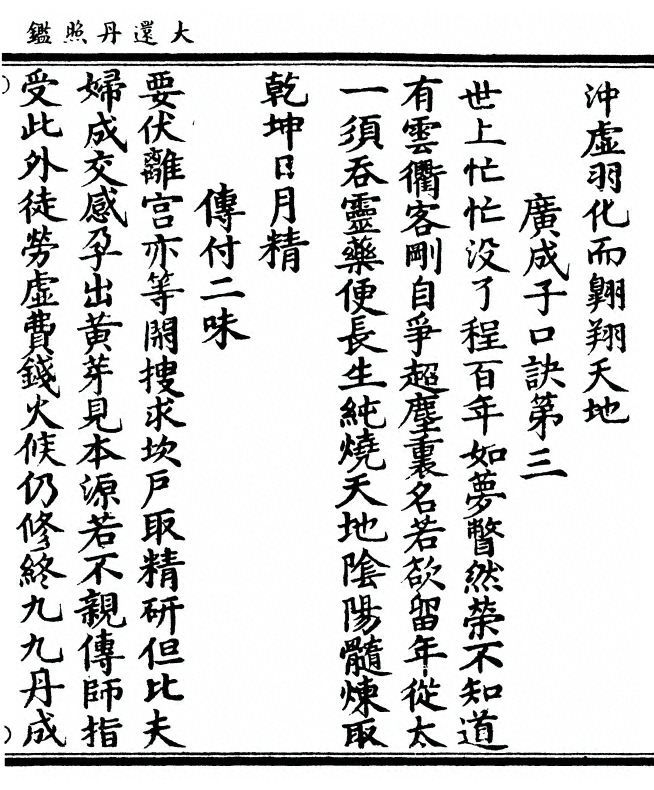 大還丹照鑑
沖虛羽化而翺翔天地
廣成子口訣第三
世上忙忙没了程百年如夢瞥然榮不知道
有雲衢客剛自爭超塵裏名若欲留年從太
一須吞靈藥便長生純燒天地陰陽髓煉取
乾坤日月精
傳付二味
要伏離宫亦等閑搜求坎戶取精研但比夫
婦成交感孕出黄芽見本源若不親傳師指
受此外徒勞虛費錢火候仍修終九九丹成